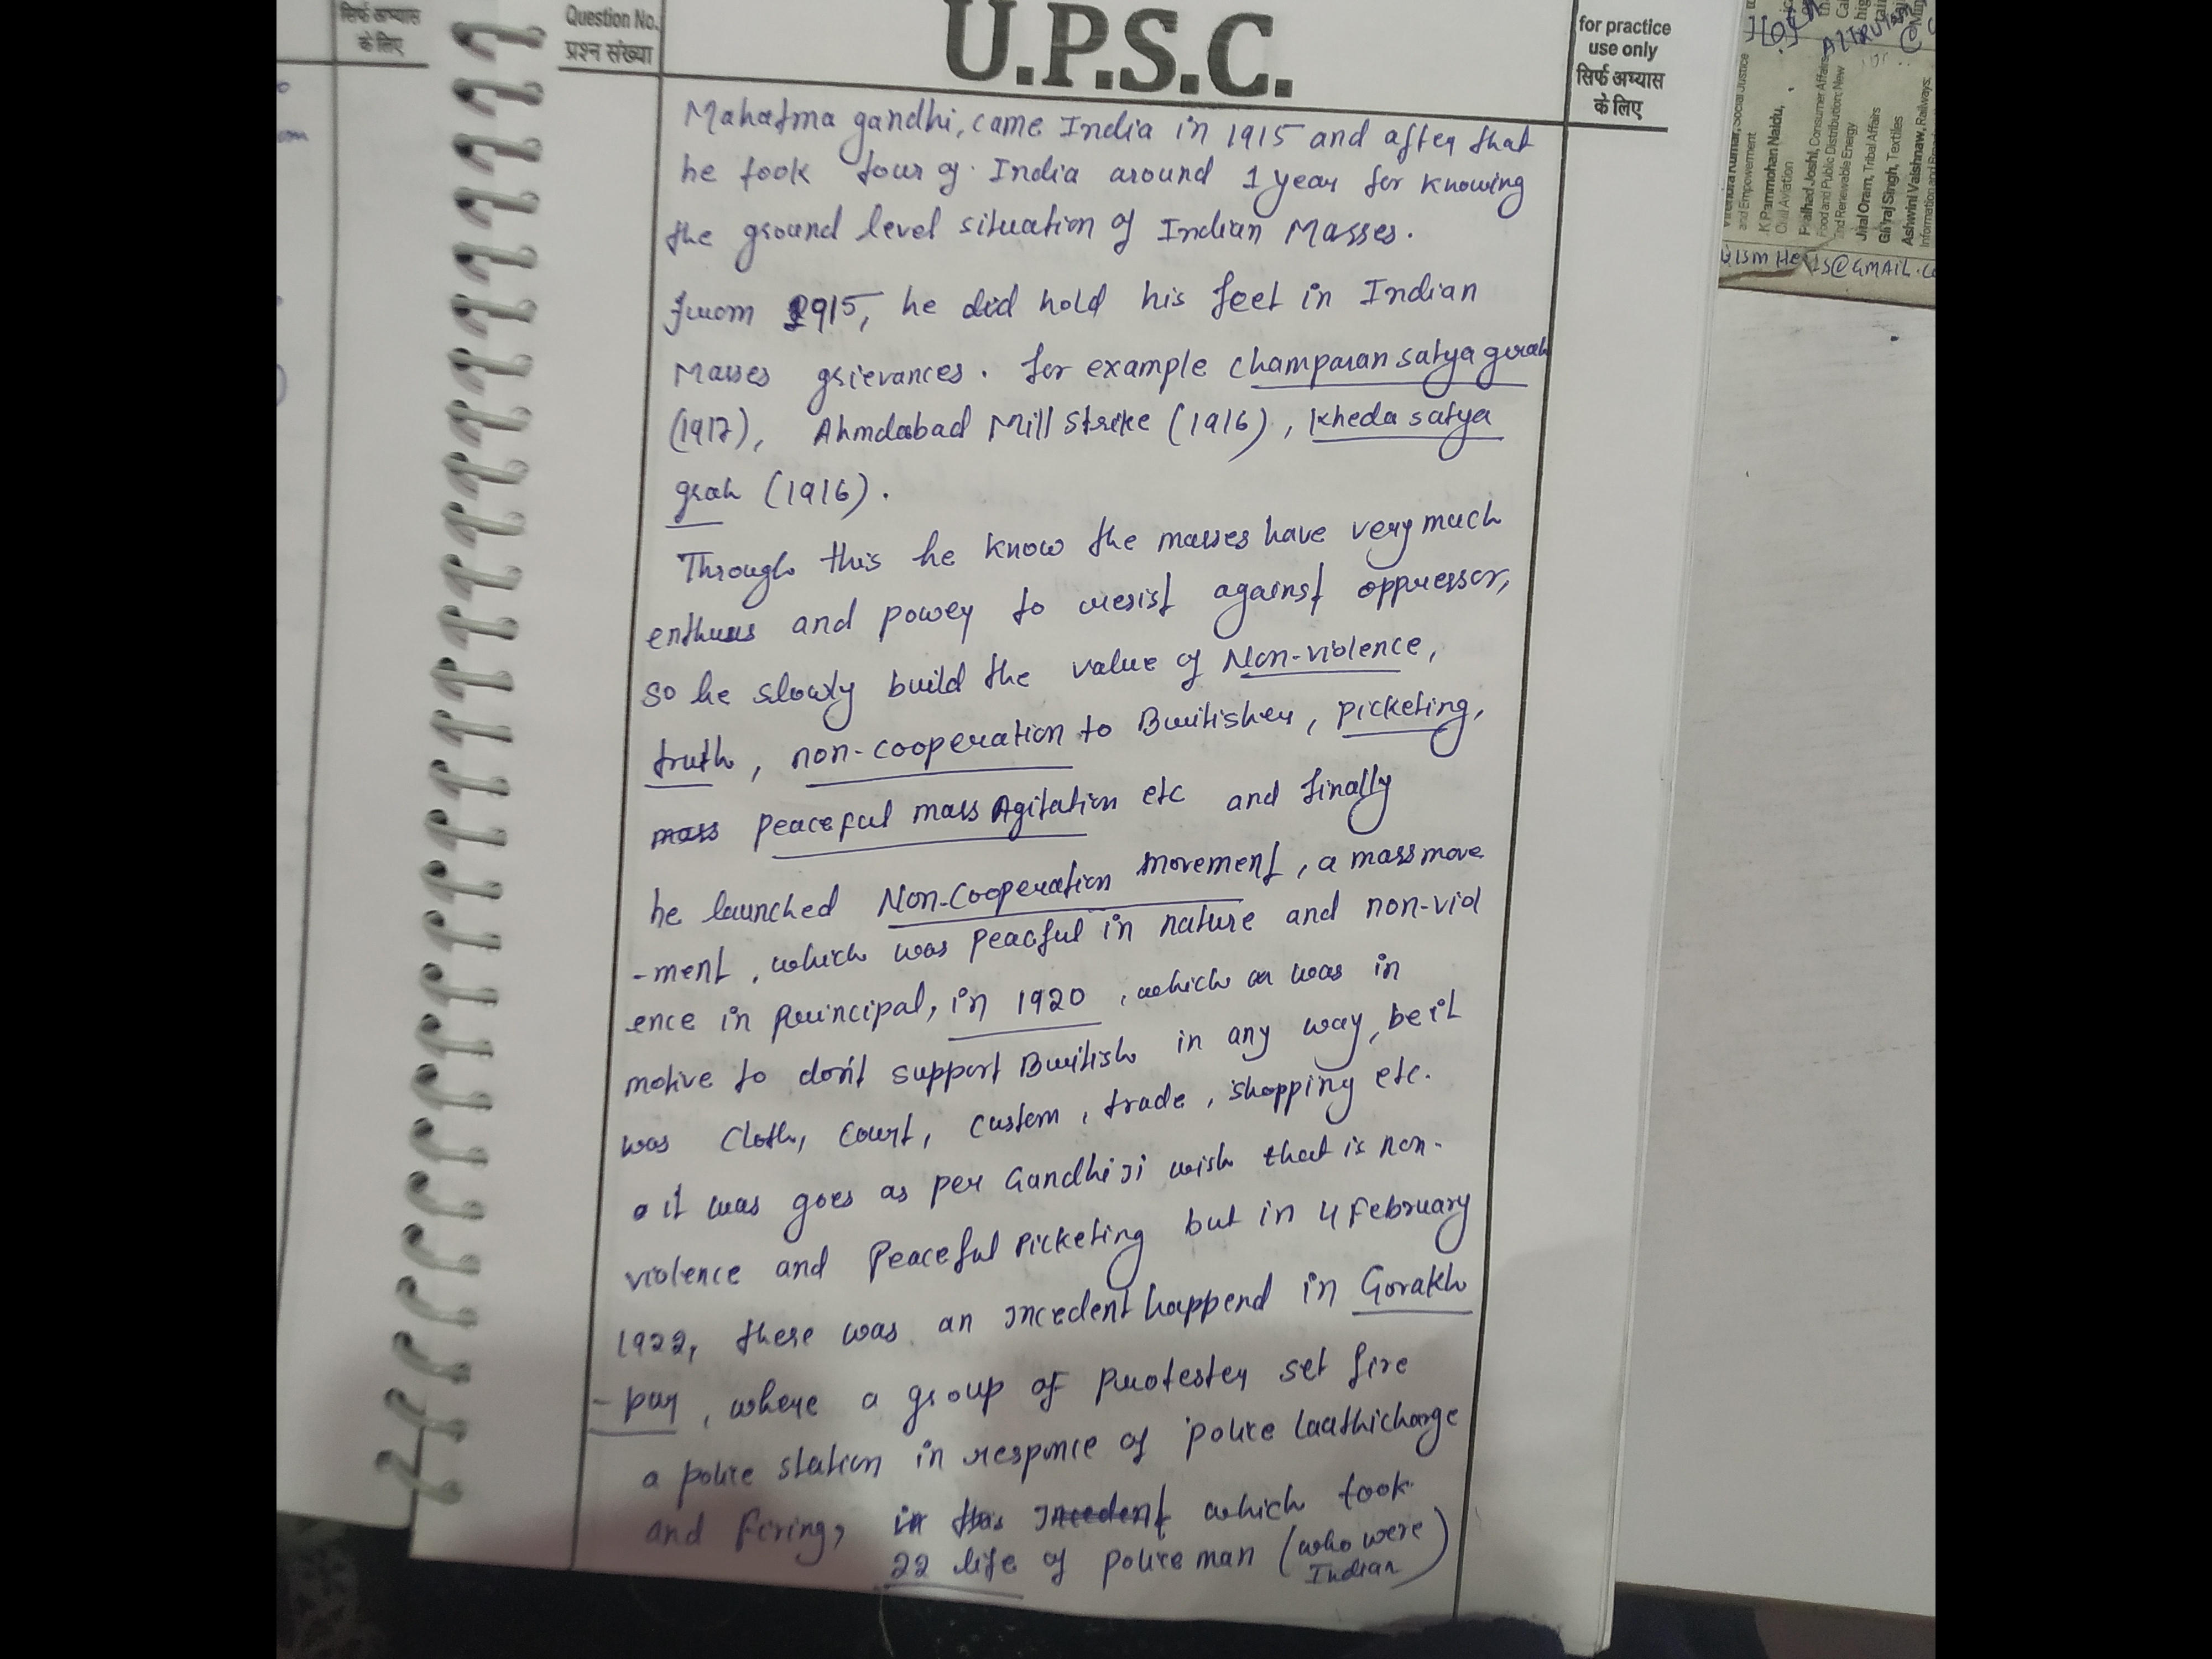 सिर्फ अभ्यास
के लिए
Question No.
प्रश्न संख्या
U.P.S.C.
for practice
use only
सिर्फ अभ्यास
के लिए
Mahatma gandhi, came India in 1915 and after that
he took tour of India around 1 year for knowing
the ground level situation of Indian Masses.
from 1915, he did hold his feet in Indian
Masses grievances. for example champaran satyagrah
(1917), Ahmdabad Mill Strike (1916), Kheda satya
grah (1916).
Through this he know the masses have very much
enthus and power to resist against oppressor,
so he slowly build the value of Non-violence,
truth, non-cooperation to Britisher, picketing,
mass peaceful mass Agitation etc and finally
he launched Non-Cooperation movement, a mass move
-ment, which was peacful in nature and non-viol
ence in principal, in 1920, which was in
motive to don't support British in any way, be it
was cloth, court, custom, trade, shopping etc.
it was goes as per Gandhi ji wish that is non-
violence and Peaceful Picketing but in 4 February
1922, there was an incedent happend in Gorakh
-pur, where a group of protester set fire
a police station in responce of police laathicharge
and firing, in this incedent which took
22 life of police man (who were
Indian)
and Empowerment
K Rammohan Naidu,
Civil Aviation
Pralhad Joshi, Consumer Affairs,
Food and Public Distribution; New
and Renewable Energy
Jual Oram, Tribal Affairs
Giriraj Singh, Textiles
Ashwini Vaishnaw, Railways;